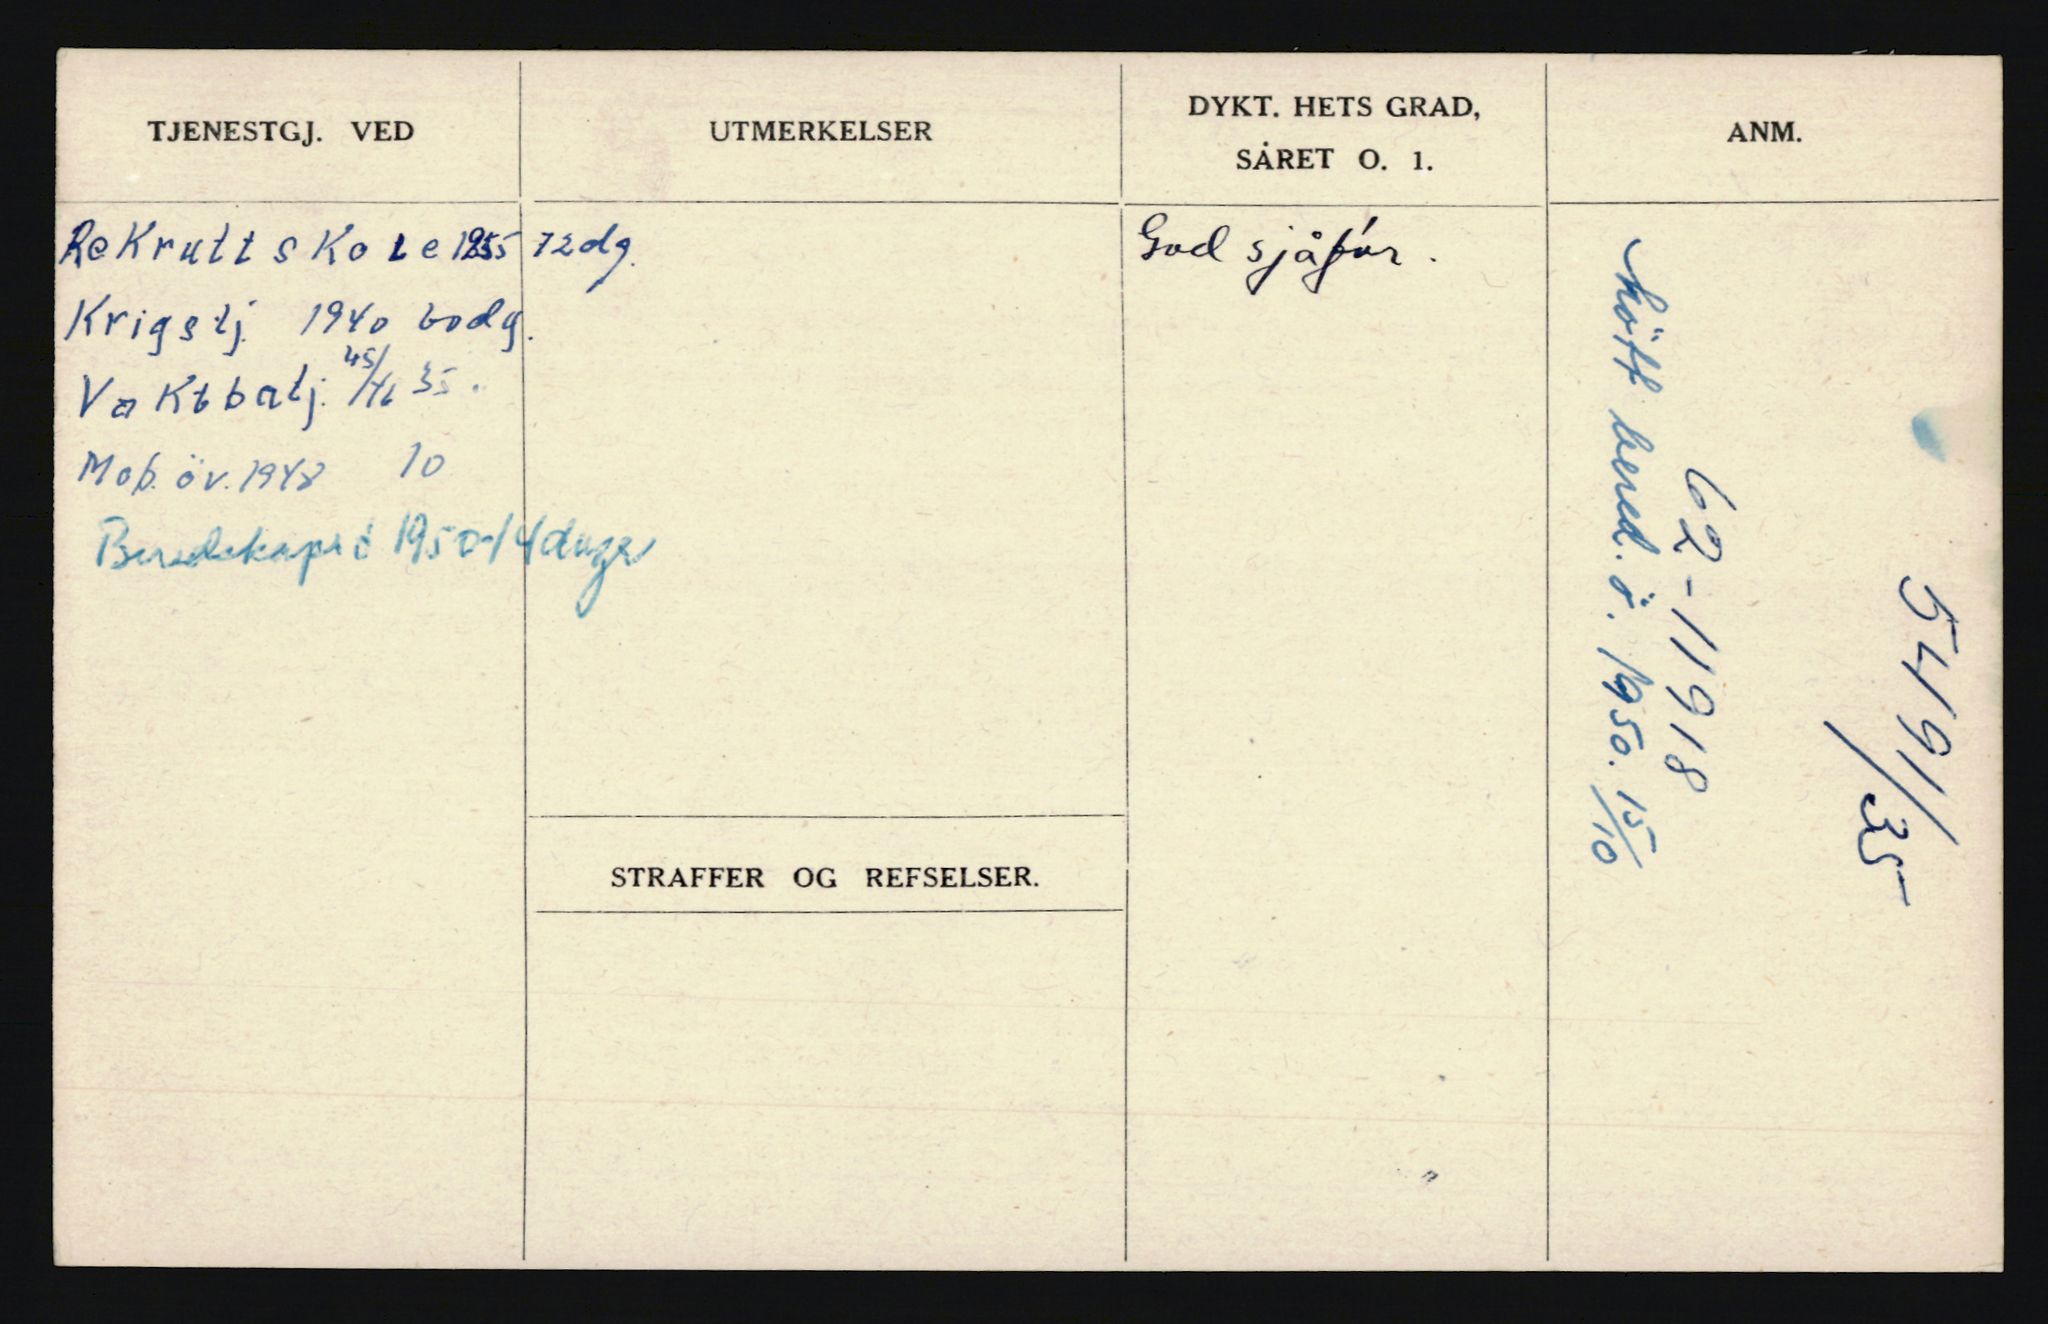 TJENESTGJ. VED
UTMERKELSER
DYKT. HETS GRAD,
SÅRET O. 1.
ANM.
Rekruttskole 1935 72 dg.
Krigstj. 1940 60 dg.
Vaktbatj. 45/46 35.
Mob. öv. 1948 10
Beredskapsö 1950-14 dager
God sjåför.
Mött bered. ö. 1950. 15/10
62-11918
54191/35
STRAFFER OG REFSELSER.